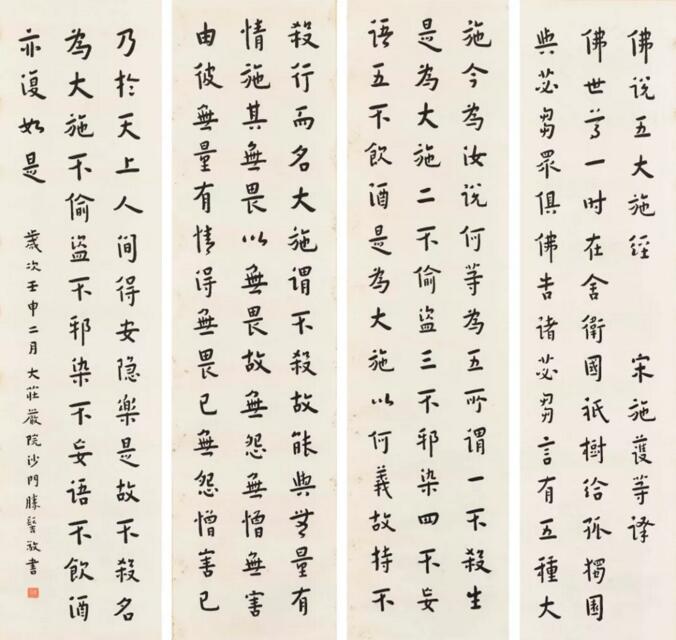 佛説五大施經 宋施護等譯
佛世尊一時在舍衛國祇樹給孤獨園
與苾芻眾俱佛告諸苾芻言有五種大
施今為汝説何等為五所謂一不殺生
是為大施二不偷盜三不邪染四不妄
語五不飲酒是為大施以何義故持不
殺行而名大施謂不殺故能與無量有
情施其無畏以無畏故無怨無憎無害
由彼無量有情得無畏已無怨憎害已
乃於天上人間得安隱樂是故不殺名
為大施不偷盜不邪染不妄語不飲酒
亦復如是
歲次壬申二月大莊嚴院沙門勝髻敬書